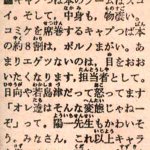 キャプつば本のブームはス
イ。そして、中身も、物凄い。
コミケを席巻するキャプつば本
の約8割は、ポルノまがい。
あまりエゲツないのは、目をおお
いたくなります。担当者として、
日向や若島津だって怒ってます
『オレ達はそんな変態じゃねー
ぞっ』って。陽一先生もかわいそ
う。みなさん、これ以上キャプ